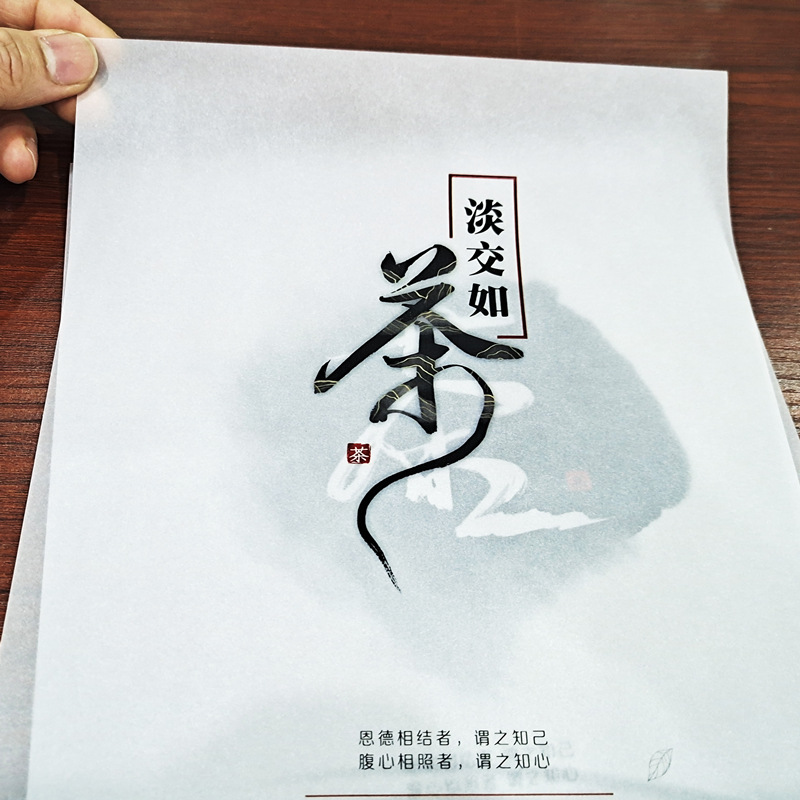 淡交如
茶
茶
恩德相结者，谓之知己
腹心相照者，谓之知心